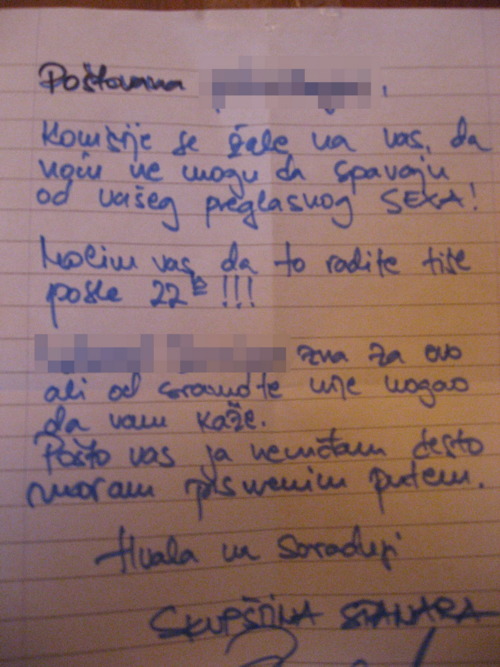 Poštovana
Komšije se žale na vas, da
noću ne mogu da spavaju
od vašeg preglasnog SEXA!
Molim vas da to radite tiše
posle 22h !!!
zna za ovo
ali od sramote nije mogao
da vam kaže.
Pošto vas ja neviđam često
moram pismenim putem.
Hvala na saradnji
SKUPŠTINA STANARA